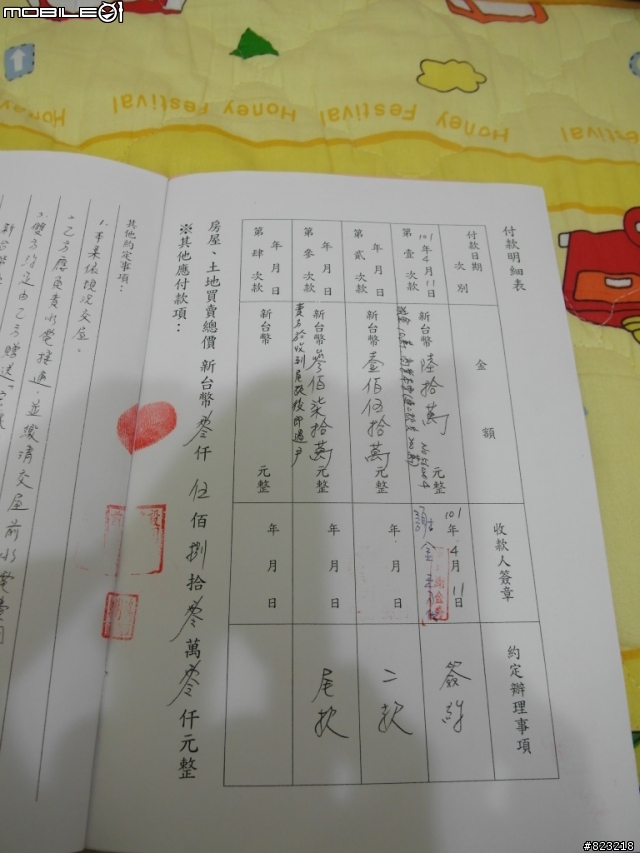 MOBILE01
Honey Festival
Honey Festival
Honey Festival
付款明細表
付款日期
次別
金額
收款人簽章
約定辦理事項
101年4月11日
第壹次款
新台幣 陸拾萬 元整
101年4月11日
簽約
年 月 日
第貳次款
新台幣 壹佰伍拾萬 元整
年 月 日
二款
年 月 日
第參次款
新台幣 參佰柒拾萬 元整
賣方於收到尾款後即過戶
年 月 日
尾款
年 月 日
第肆次款
新台幣 元整
年 月 日
房屋、土地買賣總價 新台幣 零仟 伍佰捌拾零萬零仟元整
※其他應付款項：
其他約定事項：
1. 本案依現況交屋。
2. 乙方應負責水電接通，並繳清交屋前水電費用
3. 雙方約定由乙方贈送
新台幣
#823218